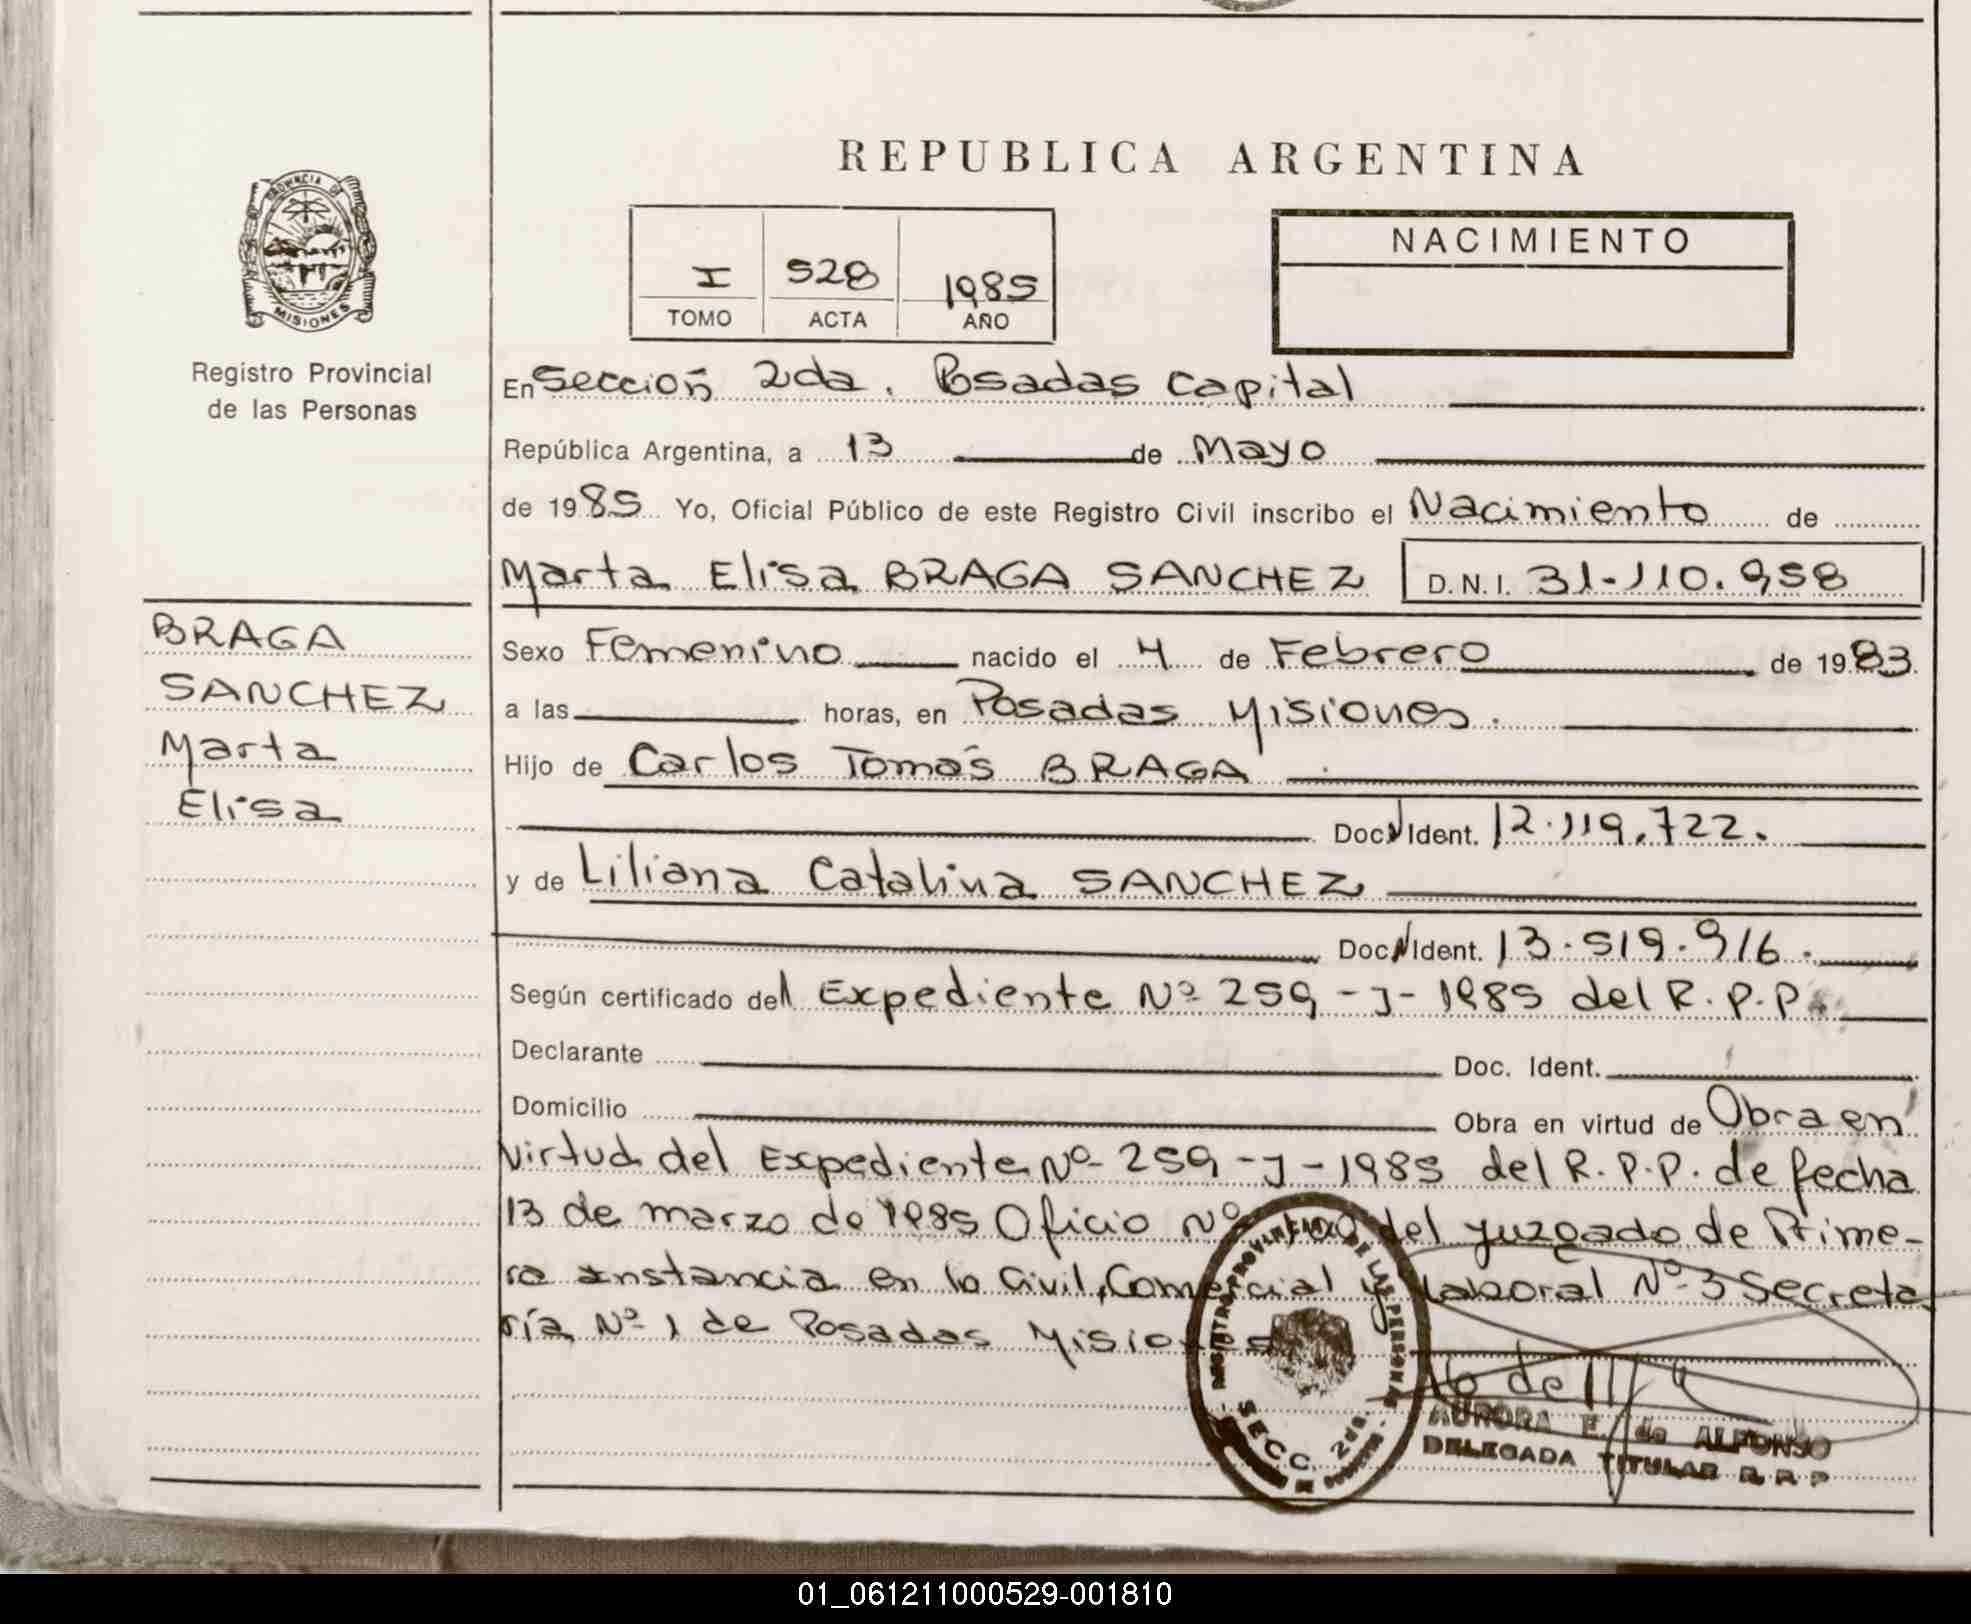 PROVINCIA DE
MISIONES
Registro Provincial
de las Personas
BRAGA
SANCHEZ
Marta
Elisa
REPUBLICA ARGENTINA
I 528 1985
TOMO ACTA AÑO
NACIMIENTO
En Sección 2da. Posadas Capital
República Argentina, a 13 de Mayo
de 1985 Yo, Oficial Público de este Registro Civil inscribo el Nacimiento de
Marta Elisa BRAGA SANCHEZ D.N.I. 31-110.958
Sexo Femenino nacido el 4 de Febrero de 1983
a las horas, en Posadas Misiones.
Hijo de Carlos Tomás BRAGA
Doc. Ident. 12.119.722.
y de Liliana Catalina SANCHEZ
Doc. Ident. 13.519.916.
Según certificado del Expediente Nº 259-J-1985 del R.P.P.
Declarante Doc. Ident.
Domicilio Obra en virtud de Obra en
virtud del Expediente Nº 259-J-1985 del R.P.P. de fecha
13 de marzo de 1985 Oficio Nº del Juzgado de Prime-
ra Instancia en lo Civil, Comercial y Laboral Nº 3 Secreta
ría Nº 1 de Posadas Misiones
REGISTRO PROVINCIAL DE LAS PERSONAS
SECC. 2da.
AURORA E. de ALFONSO
DELEGADA TITULAR R. P. P
01_061211000529-001810